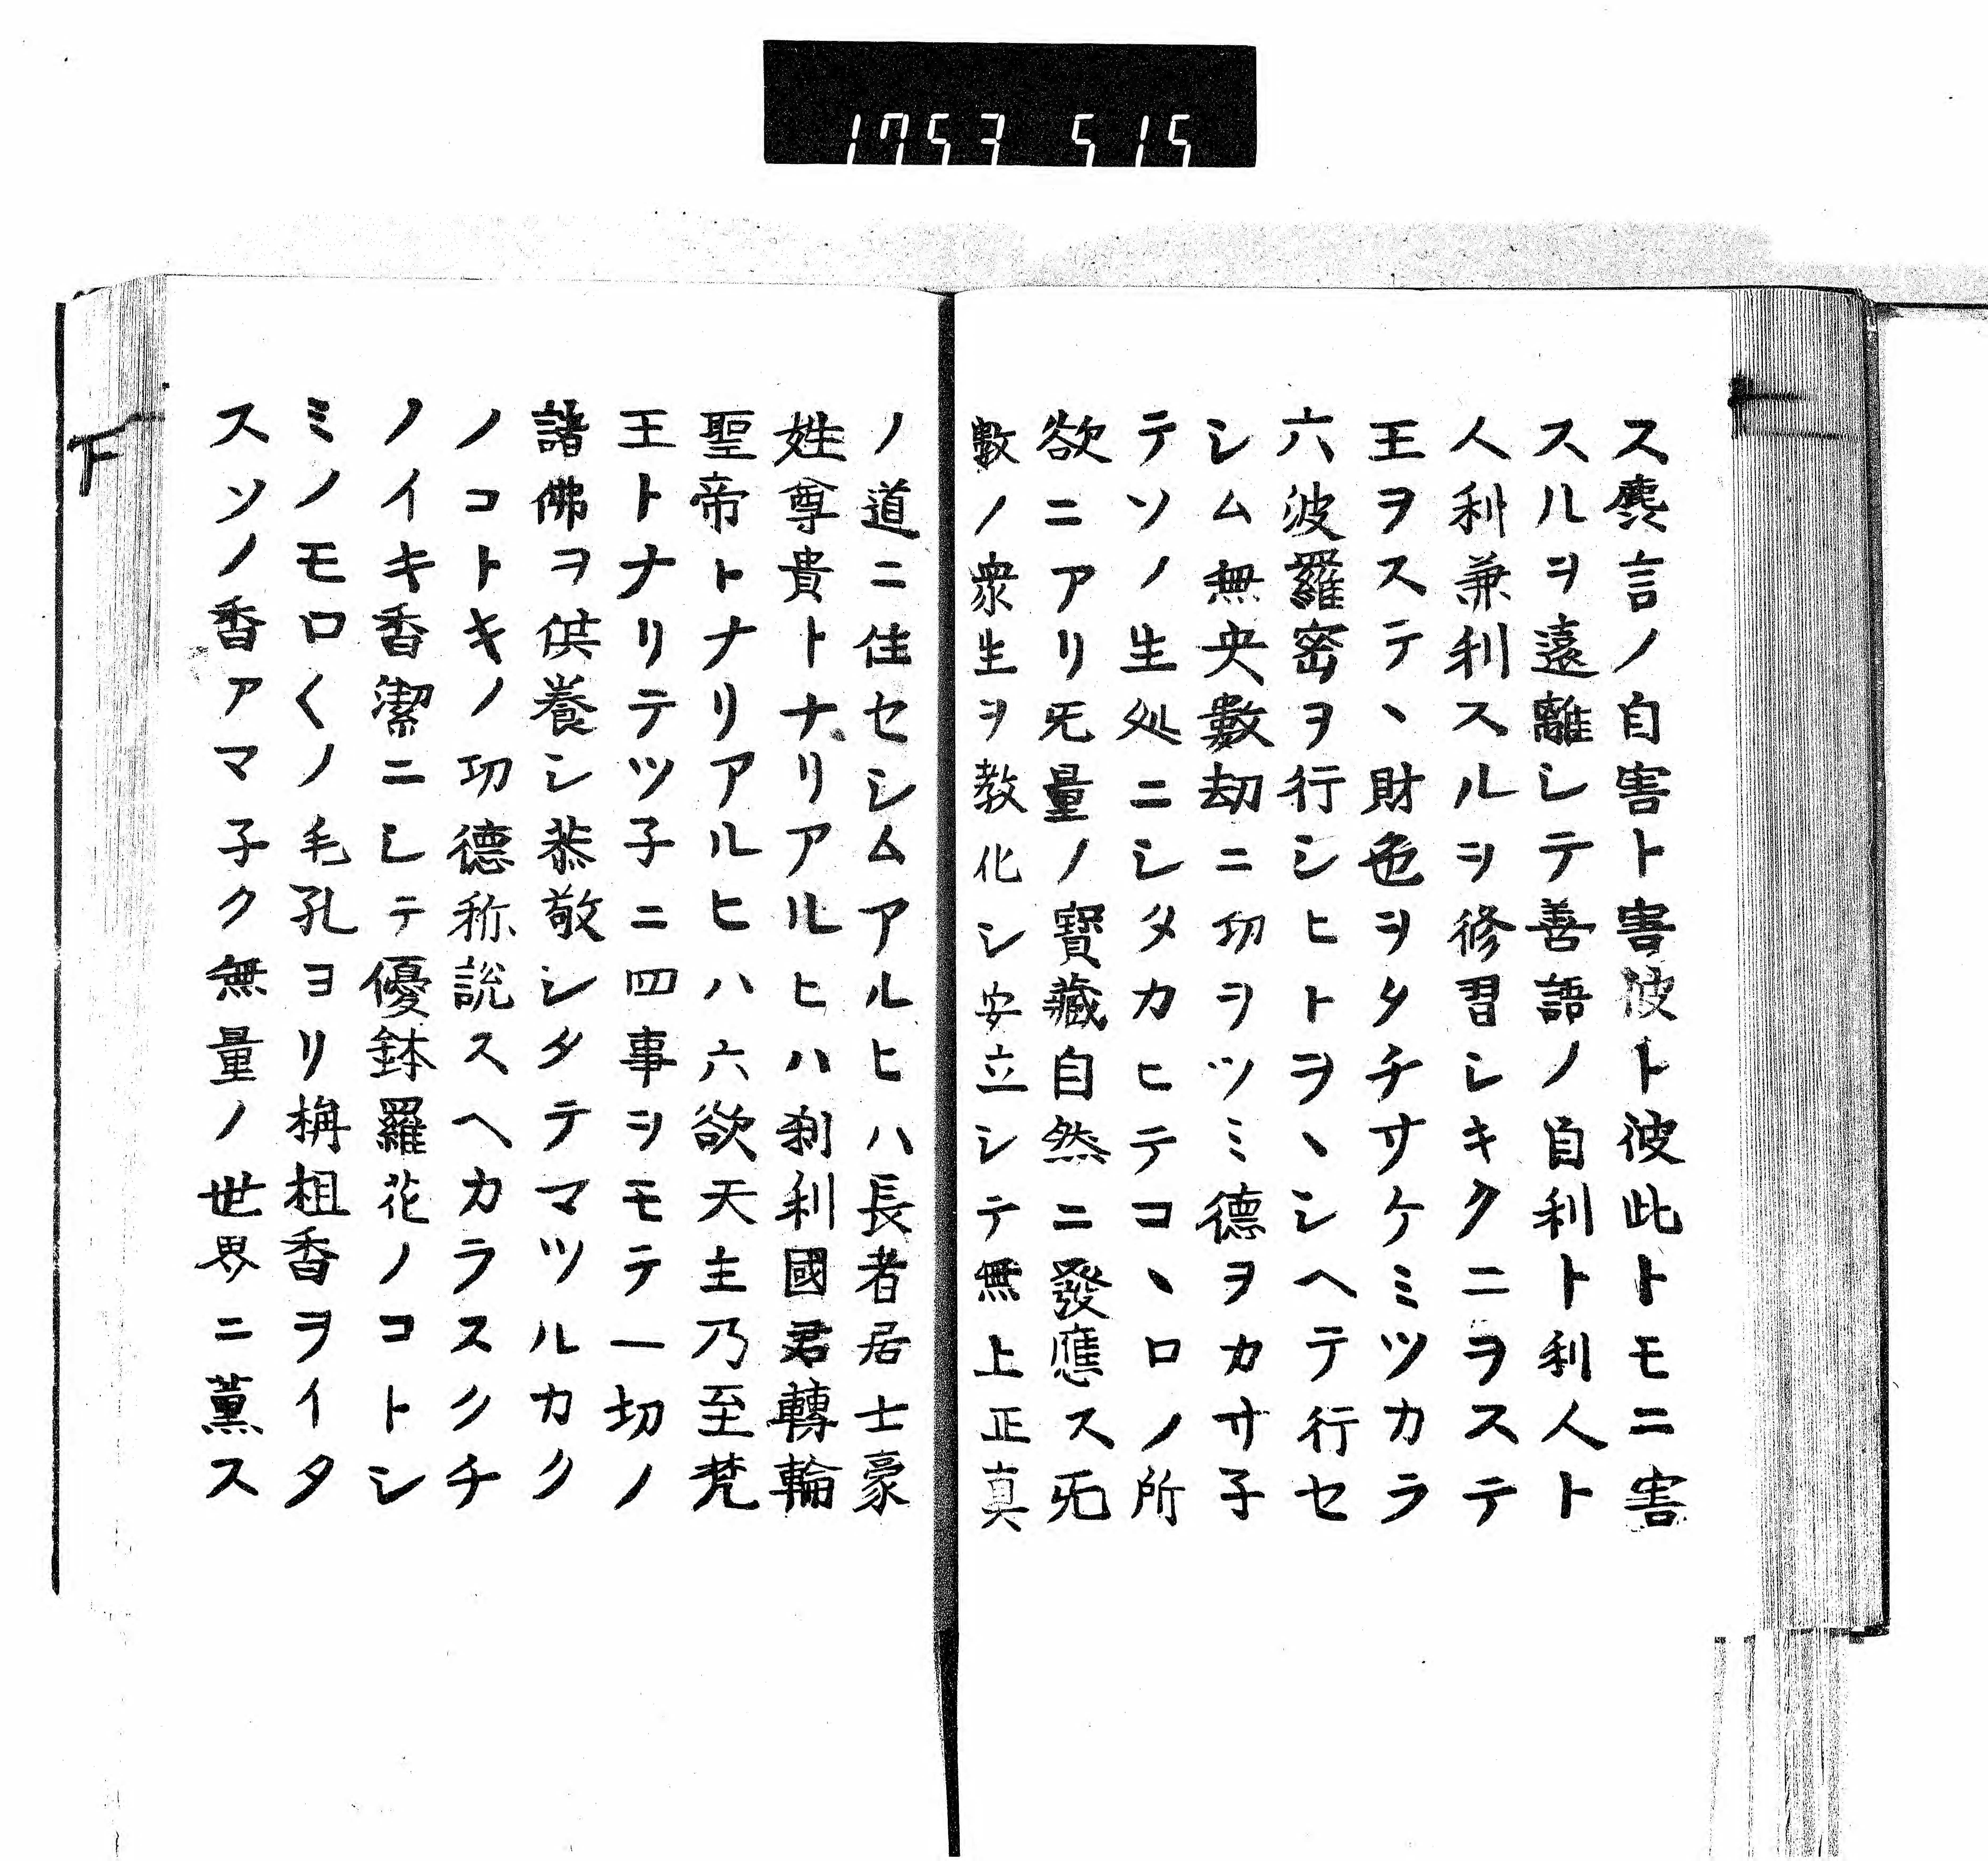 1753 515
ス麁言ノ自害ト害彼ト彼此トモニ害
スルヲ遠離シテ善語ノ自利ト利人ト
人利兼利スルヲ修習シキクニヲステ
王ヲステヽ財色ヲタチサケミツカラ
六波羅密ヲ行シヒトヲヽシヘテ行セ
シム無央數劫ニ功ヲツミ德ヲカサ子
テソノ生処ニシタカヒテコヽロノ所
欲ニアリ无量ノ寶藏自然ニ發應ス无
數ノ衆生ヲ教化シ安立シテ無上正真
ノ道ニ住セシムアルヒハ長者居士豪
姓尊貴トナリアルヒハ刹利國君轉輪
聖帝トナリアルヒハ六欲天主乃至梵
王トナリテツ子ニ四事ヲモテ一切ノ
諸佛ヲ供養シ恭敬シタテマツルカク
ノコトキノ功德称説スヘカラスクチ
ノイキ香潔ニシテ優鉢羅花ノコトシ
ミノモロ〱ノ毛孔ヨリ栴檀香ヲイタ
スソノ香アマ子ク無量ノ世界ニ薫ス
下